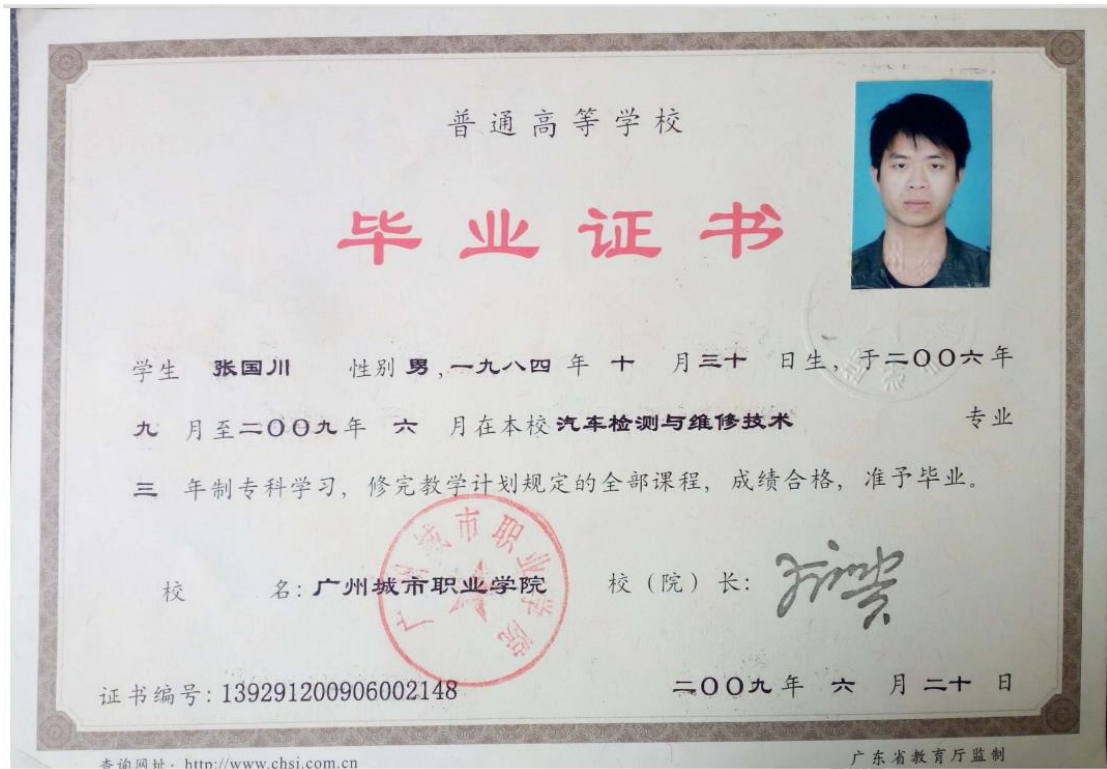 普通高等学校
毕业证书
学生 张国川 性别 男,一九八四 年 十 月三十 日生,于二〇〇六年
九 月至二〇〇九年 六 月在本校 汽车检测与维修技术 专业
三 年制专科学习,修完教学计划规定的全部课程,成绩合格,准予毕业。
校 名:广州城市职业学院 校(院)长:
广州城市职业学院
证书编号:139291200906002148 二〇〇九年 六 月 二十 日
查询网址:http://www.chsi.com.cn 广东省教育厅监制